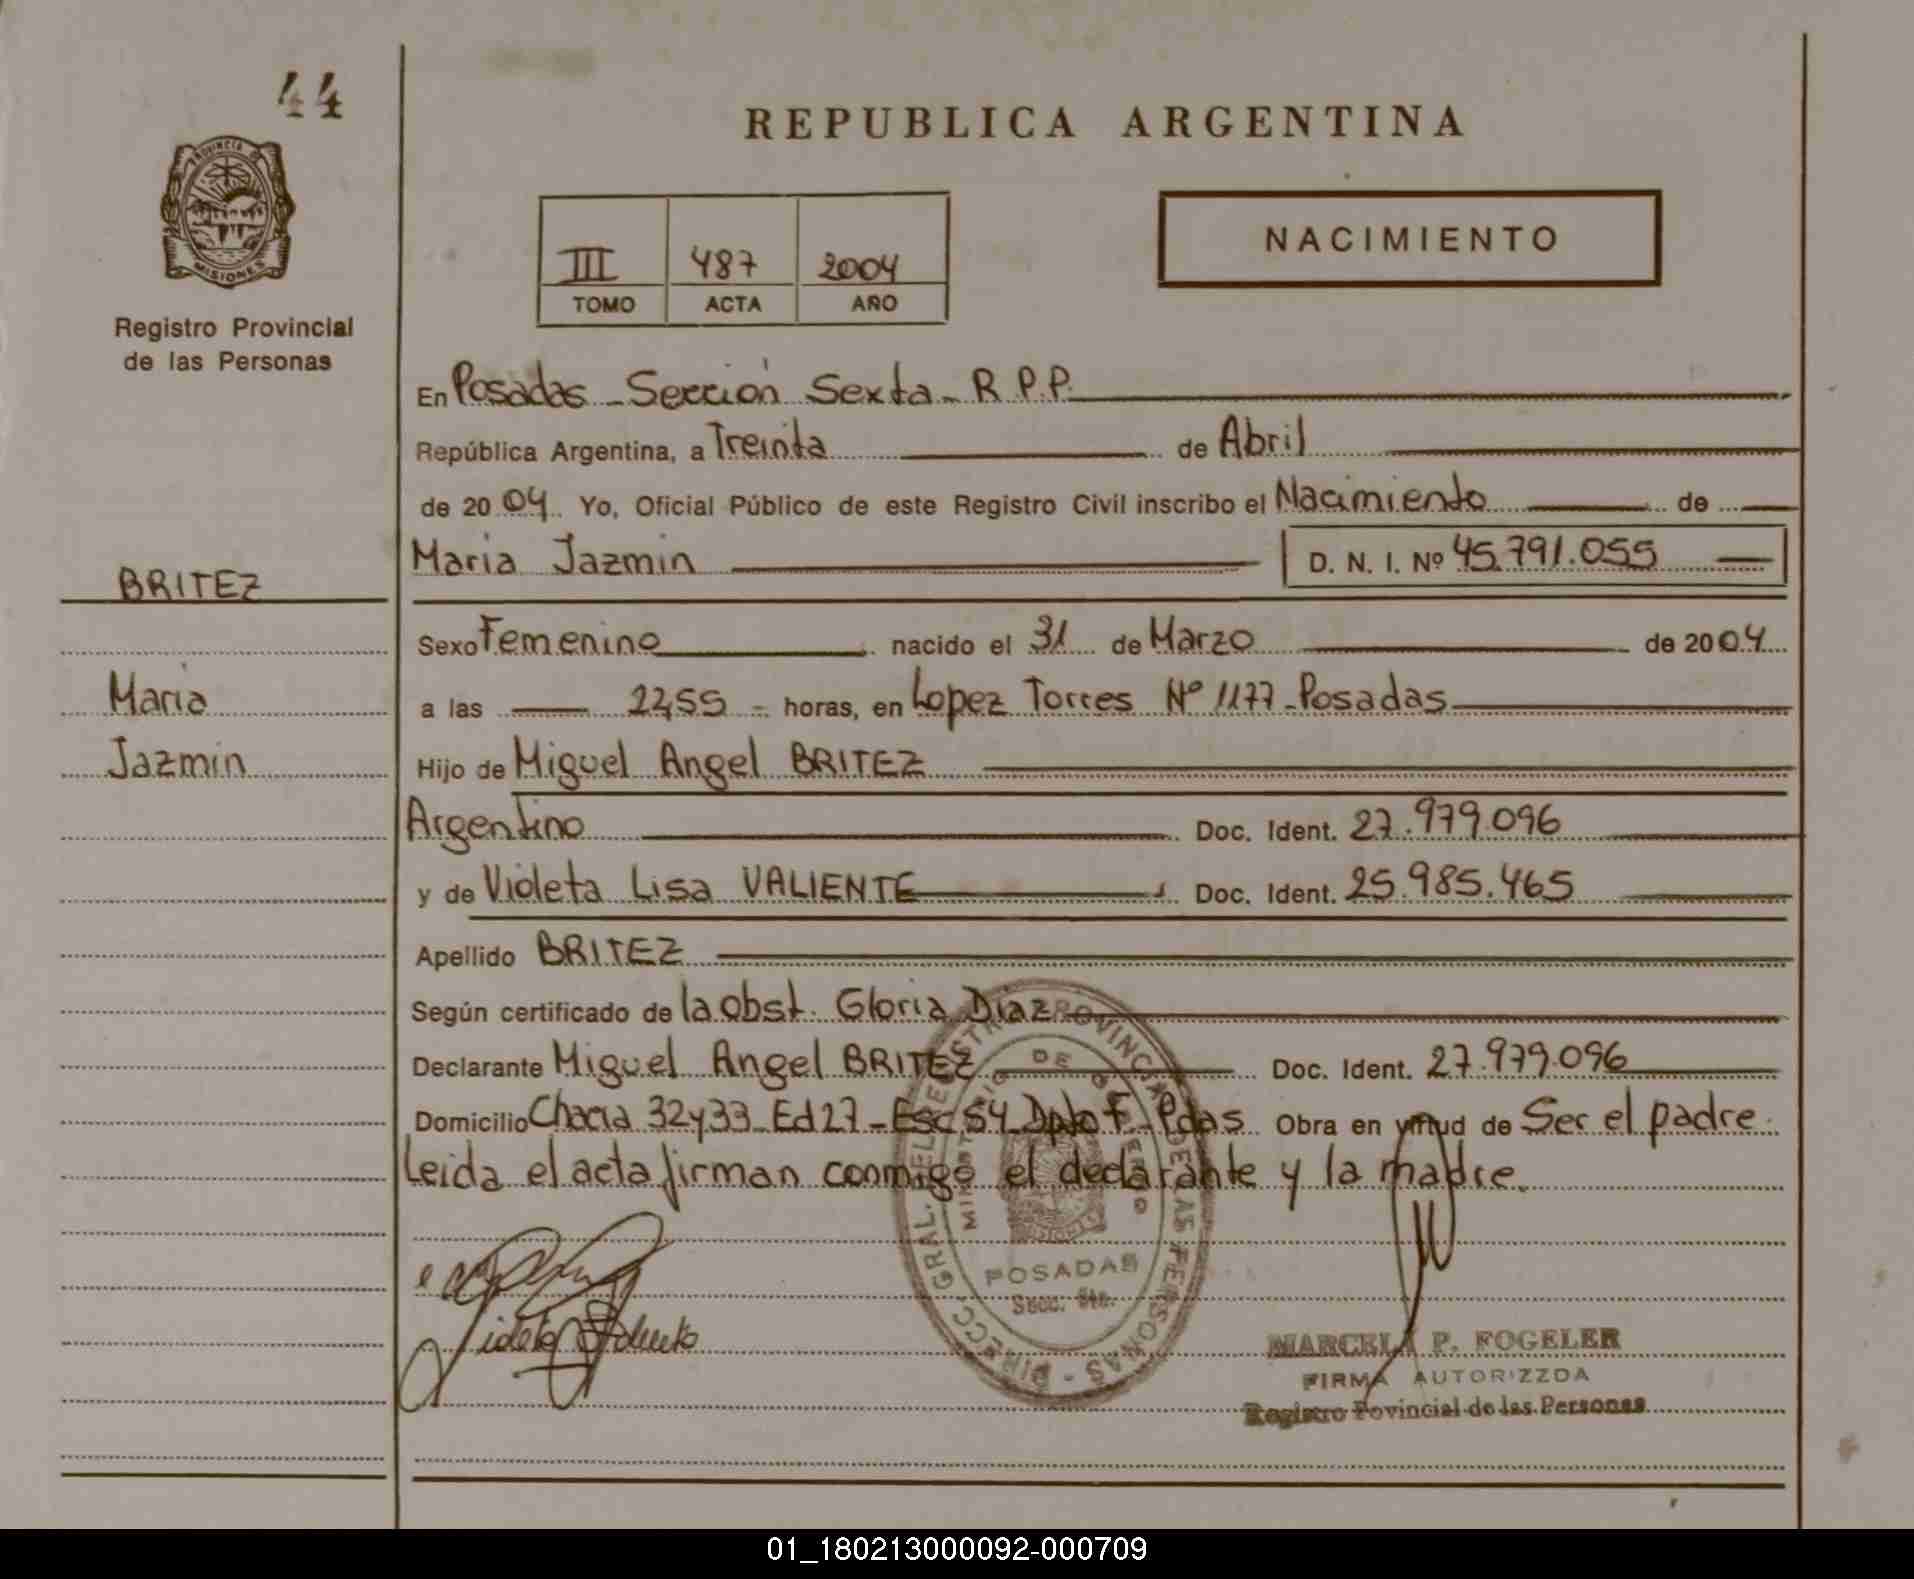 44
PROVINCIA DE
MISIONES
Registro Provincial
de las Personas
REPUBLICA ARGENTINA
III 487 2004
TOMO ACTA AÑO
NACIMIENTO
En Posadas - Sección Sexta - R.P.P.
República Argentina, a Treinta de Abril
de 2004. Yo, Oficial Público de este Registro Civil inscribo el Nacimiento de
Maria Jazmin D. N. I. Nº 45.791.055
BRITEZ
Sexo Femenino nacido el 31 de Marzo de 2004
Maria
a las 22,55 - horas, en Lopez Torres Nº 1177 - Posadas
Jazmin
Hijo de Miguel Angel BRITEZ
Argentino Doc. Ident. 27.979.096
y de Violeta Lisa VALIENTE Doc. Ident. 25.985.465
Apellido BRITEZ
Según certificado de la obst. Gloria Diaz
Declarante Miguel Angel BRITEZ Doc. Ident. 27.979.096
Domicilio Chacra 32y33 - Ed 27 - Esc 54 Dpto F - Pdas Obra en virtud de Ser el padre.
Leida el acta firman conmigo el declarante y la madre.
DIRECC. GRAL. DEL REGISTRO PROVINCIAL DE LAS PERSONAS -
MINISTERIO DE GOBIERNO
POSADAS
Secc. 6ta.
MARCELA P. FOGELER
FIRMA AUTORIZZDA
Registro Povincial de las Personas
01_180213000092-000709